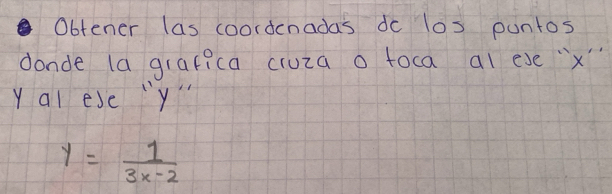 • Obtener las coordenadas de los puntos
donde la grafica cruza o toca al eje "x"
y al eje "y"
y = 1/(3x-2)